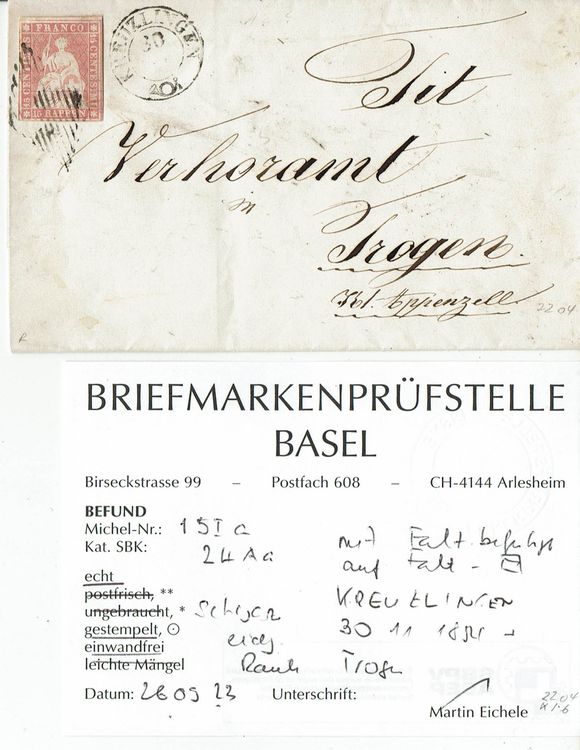 FRANCO
15 CENTES.
15 CENTESIMI
15 RAPPEN
KREUZLINGEN
30
Tit
Verhöramt
in
Trogen.
Kt. Appenzell
2204
BRIEFMARKENPRÜFSTELLE
BASEL
Birseckstrasse 99 – Postfach 608 – CH-4144 Arlesheim
BEFUND
Michel-Nr.: 15 I a
Kat. SBK: 24Aa
mit Falt. befestigt
auf Falt -
echt
postfrisch, **
ungebraucht, *
gestempelt, ⊙
einwandfrei
leichte Mängel
Schwarz
eidg.
Raute
KREUZLINGEN
30 11 185
Trogen
Datum: 26 09 23 Unterschrift:
Martin Eichele
2204